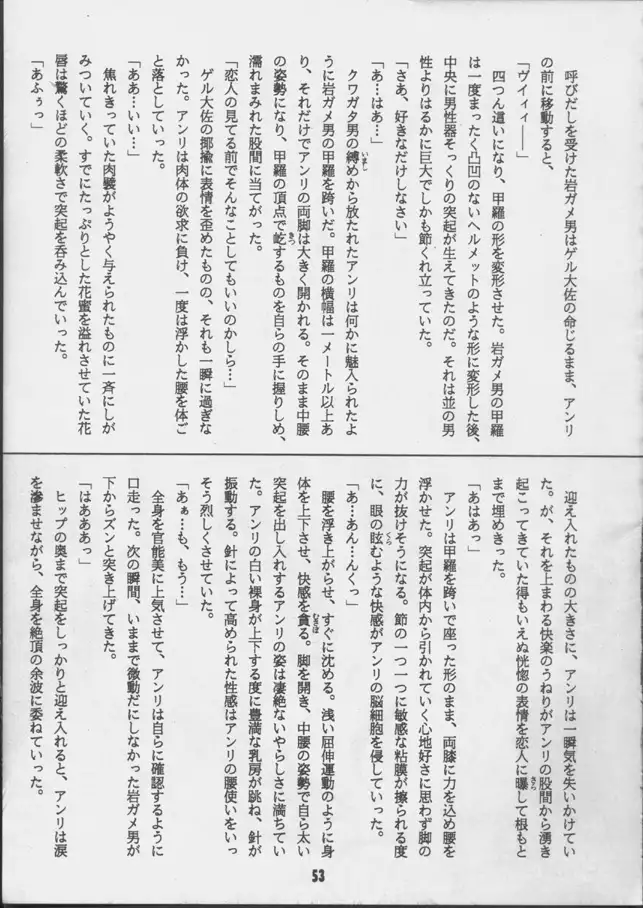 呼びだしを受けた岩ガメ男はゲル大佐の命じるまま、アンリ
の前に移動すると、
「ヴイィィ――」
　四つん這いになり、甲羅の形を変形させた。岩ガメ男の甲羅
は一度まったく凸凹のないヘルメットのような形に変形した後、
中央に男性器そっくりの突起が生えてきたのだ。それは並の男
性よりはるかに巨大でしかも節くれ立っていた。
「さあ、好きなだけしなさい」
「あ…はあ…」
　クワガタ男の縛めから放たれたアンリは何かに魅入られたよ
うに岩ガメ男の甲羅を跨いだ。甲羅の横幅は一メートル以上あ
り、それだけでアンリの両脚は大きく開かれる。そのまま中腰
の姿勢になり、甲羅の頂点で屹するものを自らの手に握りしめ、
濡れまみれた股間に当てがった。
「恋人の見てる前でそんなことしてもいいのかしら…」
　ゲル大佐の揶揄に表情を歪めたものの、それも一瞬に過ぎな
かった。アンリは肉体の欲求に負け、一度は浮かした腰を体ご
と落としていった。
「ああ…いい…」
　焦れきっていた肉襞がようやく与えられたものに一斉にしが
みついていく。すでにたっぷりとした花蜜を溢れさせていた花
唇は驚くほどの柔軟さで突起を呑み込んでいった。
「あふぅっ」
　迎え入れたものの大きさに、アンリは一瞬気を失いかけてい
た。が、それを上まわる快楽のうねりがアンリの股間から湧き
起こってきていた得もいえぬ恍惚の表情を恋人に曝して根もと
まで埋めきった。
「あはあっ」
　アンリは甲羅を跨いで座った形のまま、両膝に力を込め腰を
浮かせた。突起が体内から引かれていく心地好さに思わず脚の
力が抜けそうになる。節の一つ一つに敏感な粘膜が擦られる度
に、眼の眩むような快感がアンリの脳細胞を侵していった。
「あ…あん…んくっ」
　腰を浮き上がらせ、すぐに沈める。浅い屈伸運動のように身
体を上下させ、快感を貪る。脚を開き、中腰の姿勢で自ら太い
突起を出し入れするアンリの姿は凄絶ないやらしさに満ちてい
た。アンリの白い裸身が上下する度に豊満な乳房が跳ね、針が
振動する。針によって高められた性感はアンリの腰使いをいっ
そう烈しくさせていた。
「あぁ…も、もう…」
　全身を官能美に上気させて、アンリは自らに確認するように
口走った。次の瞬間、いままで微動だにしなかった岩ガメ男が
下からズンと突き上げてきた。
「はあああっ」
　ヒップの奥まで突起をしっかりと迎え入れると、アンリは涙
を滲ませながら、全身を絶頂の余波に委ねていった。
53